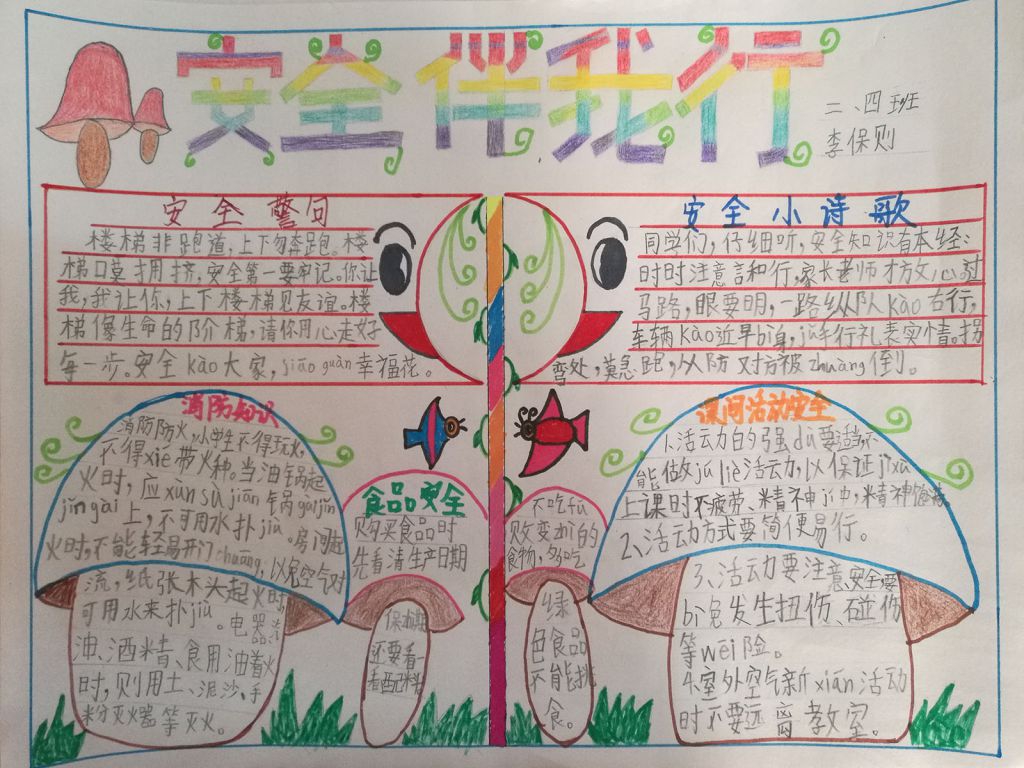 安全伴我行
二、四班
李保则
安全警句
楼梯非跑道,上下勿奔跑。楼
梯口莫拥挤,安全第一要牢记。你让
我,我让你,上下楼梯见友谊。楼
梯像生命的阶梯,请你用心走好
每一步。安全kào大家,jiāo guàn幸福花。
安全小诗歌
同学们,仔细听,安全知识有本经:
时时注意言和行,家长老师才放心,过
马路,眼要明,一路纵队kào右行,
车辆kào近早bì身,jǔ手行礼表实情。拐
弯处,莫急跑,以防对方被zhuàng倒。
消防知识
消防防火,小学生不得玩火,
不得xié带火种。当油锅起
火时,应xùn sù jiāng锅gài jǐn
jǐn gài上,不可用水扑jiù。房间起
火时,不能轻易开门chuāng,以免空气对
流,纸张木头起火时
可用水来扑jiù。电器、汽
油、酒精、食用油着火
时,则用土、泥沙、干
粉灭火器等灭火。
食品安全
购买食品时
先看清生产日期
保质期
还要看一
看配料
不吃fǔ
败变zhì的
食物,多吃
绿
色食品
不能挑
食。
课间活动安全
1、活动的强dù要适当,不
能做jù liè活动,以保证jì xù
上课时不疲劳、精神jí中,精神饱满。
2、活动方式要简便易行。
3、活动要注意安全要
bì免发生扭伤、碰伤
等wēi险。
4、室外空气新xiān活动
时不要远离教室。